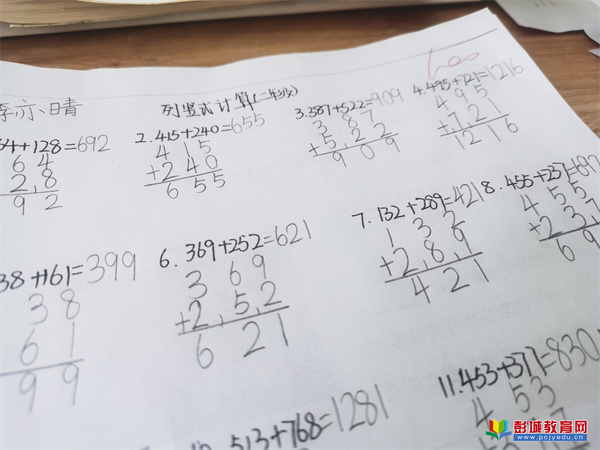 李亦晴
列竖式计算(二年级)
100
64+128=692
64
28
92
2.415+240=655
415
+240
655
3.387+522=909
387
+522
909
4.495+721=1216
495
+721
1216
38+161=399
38
61
99
6.369+252=621
369
+252
621
7.132+289=421
132
+289
421
8.455+237=69
455
+237
69
513+768=1281
11.453+377=830
453
彭城教育网
www.pcjyedu.com